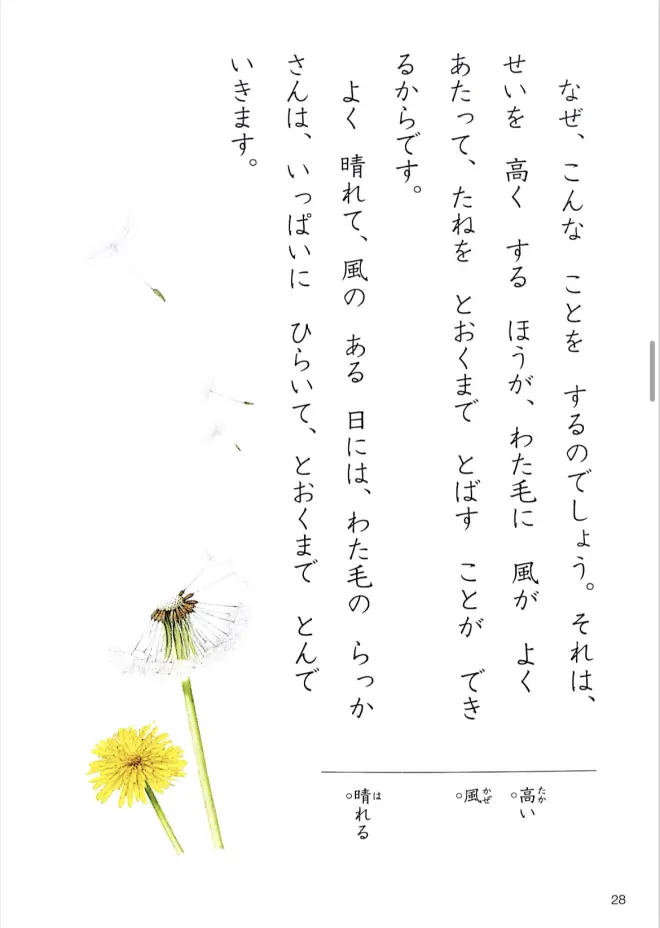 なぜ、こんな ことを するのでしょう。それは、
せいを 高く する ほうが、わた毛に 風が よく
あたって、たねを とおくまで とばす ことが でき
るからです。
よく 晴れて、風の ある 日には、わた毛の らっか
さんは、いっぱいに ひらいて、とおくまで とんで
いきます。
たか
○高い
かぜ
○風
は
○晴れる
28